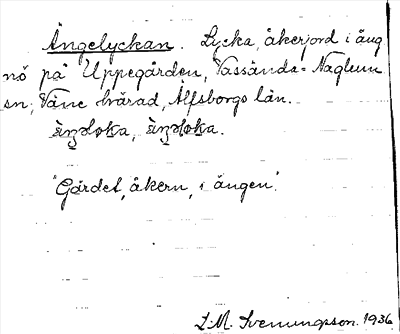 Ängelyckan. Lycka, åkerjord i äng
nö på Uppegården, Vassända-Naglum
sn, Väne härad, Älfsborgs län.
"Gärdet, åkern, i ängen".
S. M. Svenungsson. 1936